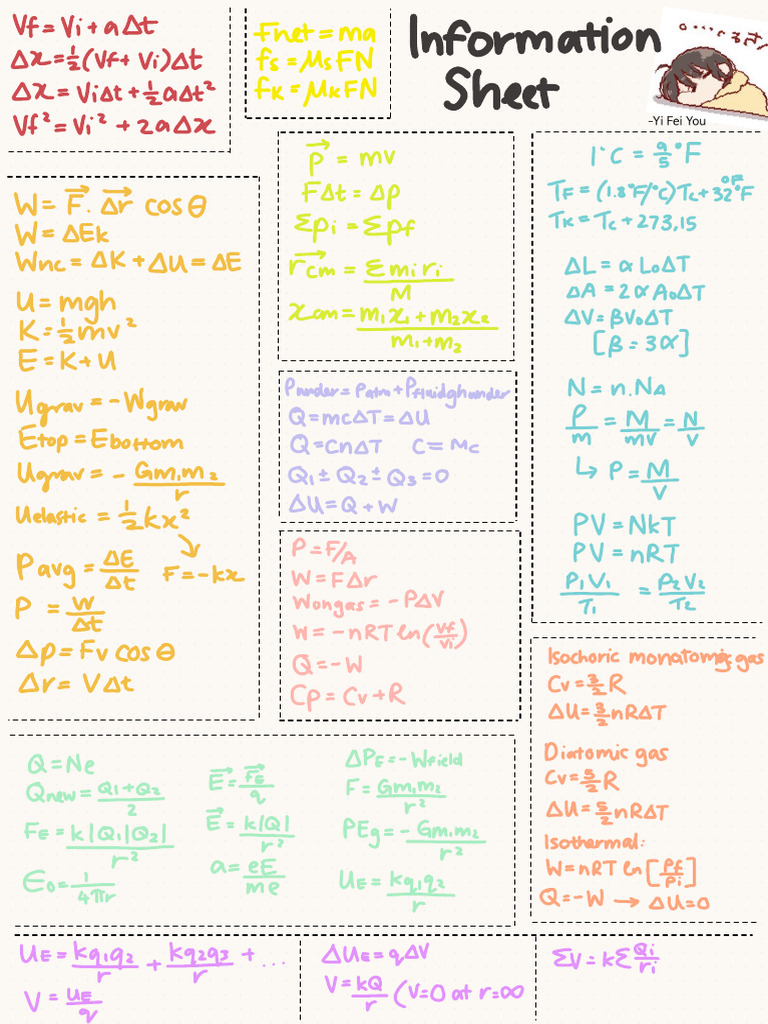 Information
Sheet
-Yi Fei You
Vf = Vi + aΔt
Δx = ½(Vf + Vi)Δt
Δx = ViΔt + ½aΔt²
Vf² = Vi² + 2aΔx
Fnet = ma
fs = μsFN
fk = μkFN
W = F⃗ · Δr⃗ cosθ
W = ΔEk
Wnc = ΔK + ΔU = ΔE
U = mgh
K = ½mv²
E = K + U
Ugrav = -Wgrav
Etop = Ebottom
Ugrav = - Gm₁m₂/r
Uelastic = ½kx²
↘ F = -kx
Pavg = ΔE/Δt
P = W/Δt
Δp = Fv cosθ
Δr = VΔt
p⃗ = mv
FΔt = Δp
Σpi = Σpf
r⃗cm = Σmiri/M
xcm = (m₁x₁ + m₂x₂)/(m₁ + m₂)
Punder = Patm + Pfluidghunder
Q = mcΔT = ΔU
Q = CnΔT C = Mc
Q₁ ± Q₂ ± Q₃ = 0
ΔU = Q + W
P = F/A
W = FΔr
Wongas = -PΔV
W = -nRT ln(Vf/Vi)
Q = -W
Cp = Cv + R
1°C = 9/5 °F
TF = (1.8°F/°C)Tc + 32°F
TK = Tc + 273,15
ΔL = αL₀ΔT
ΔA = 2αA₀ΔT
ΔV = βV₀ΔT
[β = 3α]
N = n.NA
P/m = M/mv = N/V
↳ P = M/V
PV = NkT
PV = nRT
P₁V₁/T₁ = P₂V₂/T₂
Isochoric monatomic gas
Cv = 3/2 R
ΔU = 3/2 nRΔT
Diatomic gas
Cv = 5/2 R
ΔU = 5/2 nRΔT
Isothermal:
W = nRT ln[Pf/Pi]
Q = -W → ΔU = 0
Q = Ne
Qnew = (Q₁ + Q₂)/2
FE = k|Q₁||Q₂|/r²
ϵ₀ = 1/4πr
E⃗ = F⃗E/q
E⃗ = k|Q|/r²
a = eE/me
ΔPE = -Wfield
F = Gm₁m₂/r²
PEg = - Gm₁m₂/r²
UE = kq₁q₂/r
UE = kq₁q₂/r + kq₂q₃/r + ...
V = UE/q
ΔUE = qΔV
V = kQ/r (V=0 at r=∞
ΣV = kΣ Qi/ri